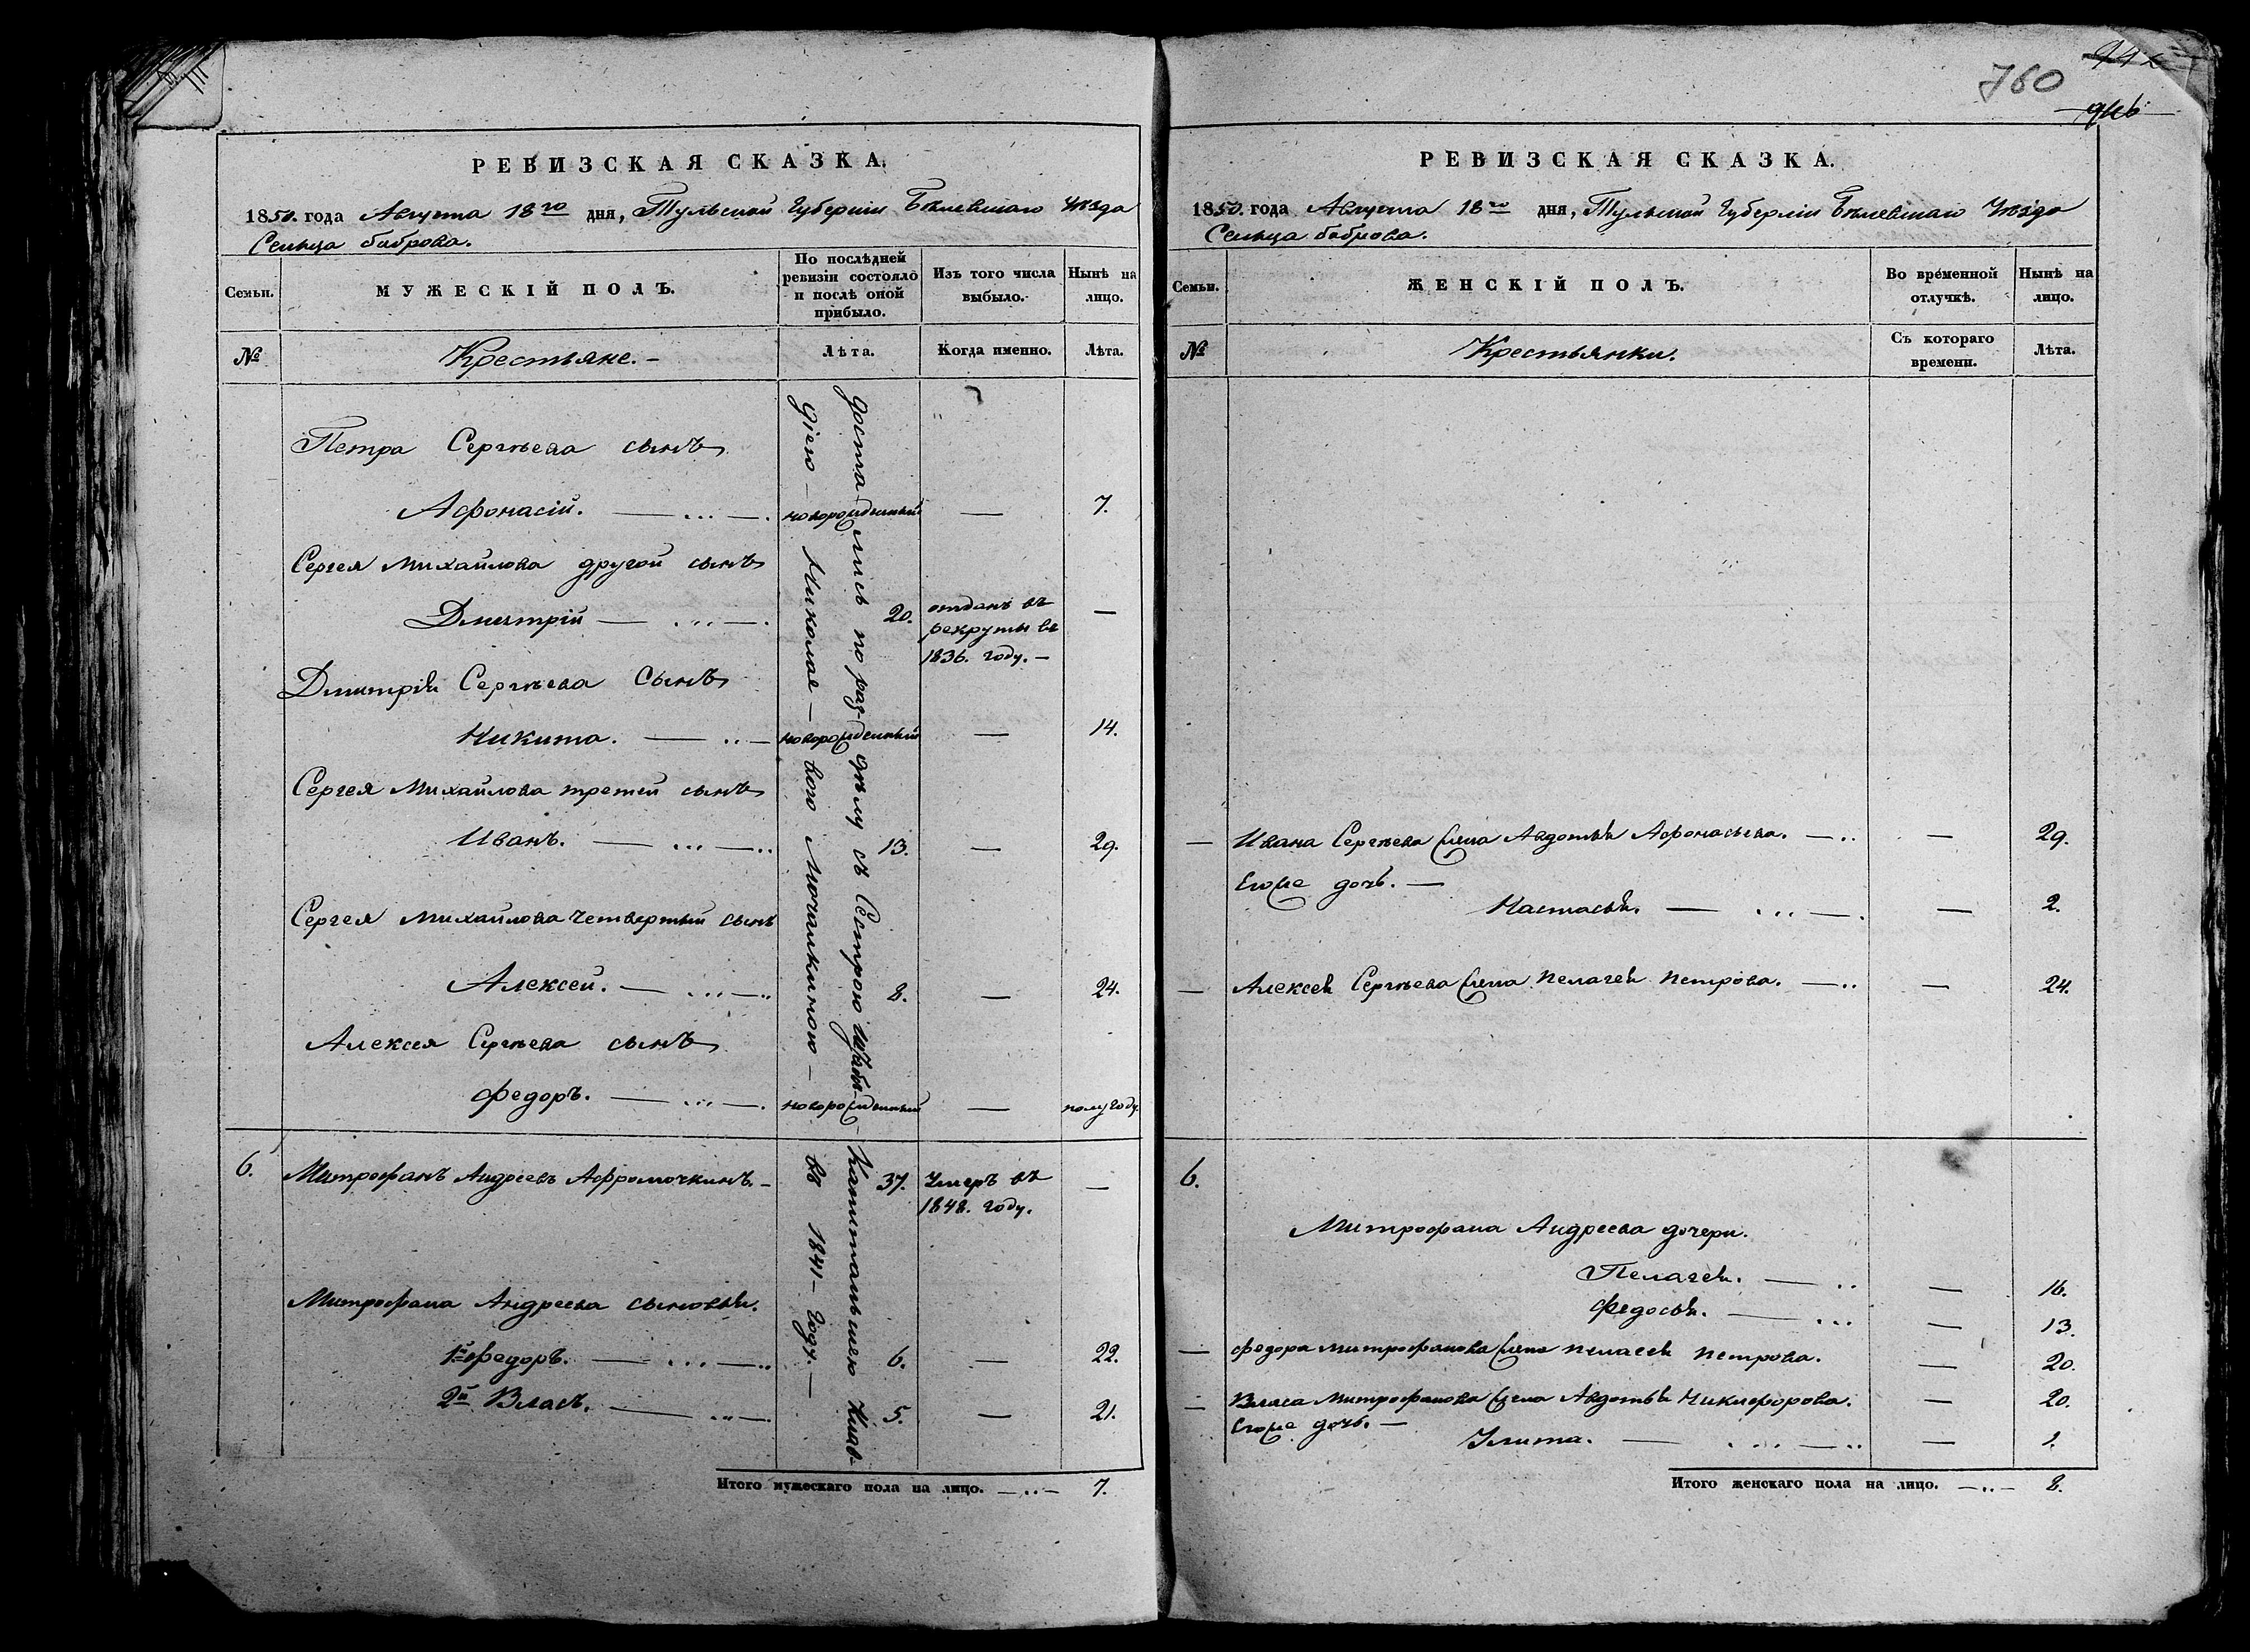 760
РЕВИЗСКАЯ СКАЗКА.
1850. года Августа 18го дня, Тульской Губерніи Бѣлевскаго Уѣзда
Сельца боброва.
Семьи.
МУЖЕСКІЙ ПОЛЪ.
По послѣдней ревизіи состояло и послѣ оной прибыло.
Изъ того числа выбыло.
Нынѣ на лицо.
№
Крестьяне.
Лѣта.
Когда именно.
Лѣта.
Петра Сергѣева сынъ
Афонасій. новорожденный — 7.
Сергея Михайлова другой сынъ
Дмитрій — 20. отданъ въ рекруты въ 1836. году. —
Дмитрія Сергѣева Сынъ
Никита. — новорожденный — 14.
Сергея Михайлова третей сынъ
Иванъ. — 13. — 29.
Сергея Михайлова четвертый сынъ
Алексей. — 8. — 24.
Алексея Сергѣева сынъ
Федоръ. — новорожденный — полугоду
6. Митрофанъ Андреевъ Афромочкинъ. — 37. Умеръ въ 1848. году. —
Митрофана Андреева сыновья.
1й Федоръ. — 6. — 22.
2й Власъ. — 5. — 21.
достались по раздѣлу съ Сестрою Капитаншею
діею Николае — вою — въ 1841 — году. —
Итого мужескаго пола на лицо. — 7.
РЕВИЗСКАЯ СКАЗКА.
1850. года Августа 18го дня, Тульской Губерніи Бѣлевскаго Уѣзда
Сельца боброва.
Семьи.
ЖЕНСКІЙ ПОЛЪ.
Во временной отлучкѣ.
Нынѣ на лицо.
№
Крестьянки.
Съ котораго времени.
Лѣта.
— Ивана Сергѣева жена Авдотья Афонасьева. — — 29.
Егоже дочь. —
Настасья. — — 2.
— Алексея Сергѣева жена Пелагея Петрова. — — 24.
6.
Митрофана Андреева дочери.
Пелагея. — — 16.
Федосья. — — 13.
— Федора Митрофанова жена Пелагея Петрова. — 20.
— Власа Митрофанова жена Авдотья Никифорова. — 20.
Егоже дочь. —
Улита. — — 1.
Итого женскаго пола на лицо. — 8.